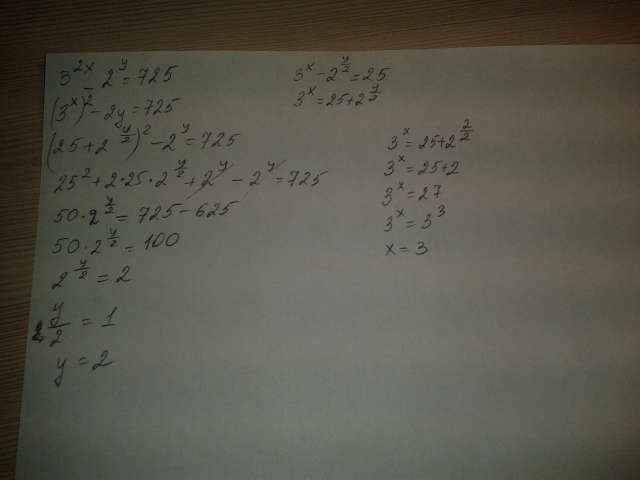 3^{2x} - 2^y = 725
(3^x)^2 - 2y = 725
(25 + 2^{y/2})^2 - 2^y = 725
25^2 + 2·25·2^{y/2} + 2^y - 2^y = 725
50·2^{y/2} = 725 - 625
50·2^{y/2} = 100
2^{y/2} = 2
y/2 = 1
y = 2
3^x - 2^{y/2} = 25
3^x = 25 + 2^{y/2}
3^x = 25 + 2^{2/2}
3^x = 25 + 2
3^x = 27
3^x = 3^3
x = 3